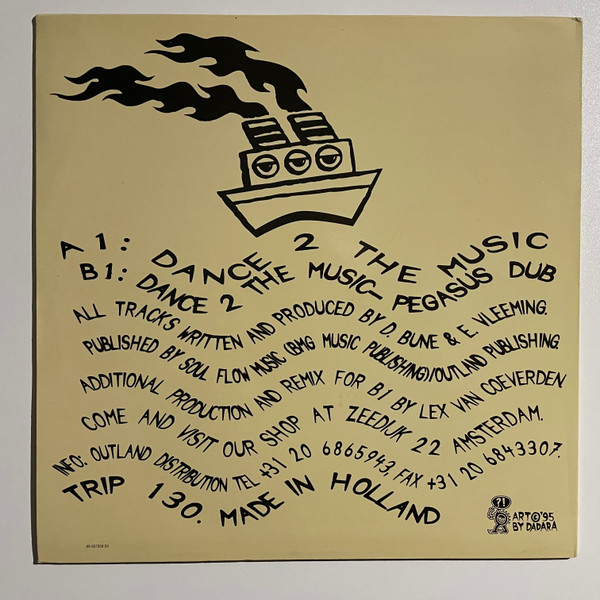 A1: DANCE 2 THE MUSIC
B1: DANCE 2 THE MUSIC- PEGASUS DUB
ALL TRACKS WRITTEN AND PRODUCED BY D. BUNE & E. VLEEMING.
PUBLISHED BY SOUL FLOW MUSIC (BMG MUSIC PUBLISHING)/OUTLAND PUBLISHING.
ADDITIONAL PRODUCTION AND REMIX FOR B1 BY LEX VAN COEVERDEN
COME AND VISIT OUR SHOP AT ZEEDIJK 22 AMSTERDAM.
INFO: OUTLAND DISTRIBUTION TEL +31 20 6865943, FAX +31 20 6843307.
TRIP 130. MADE IN HOLLAND
?!
ART©'95
BY DADARA